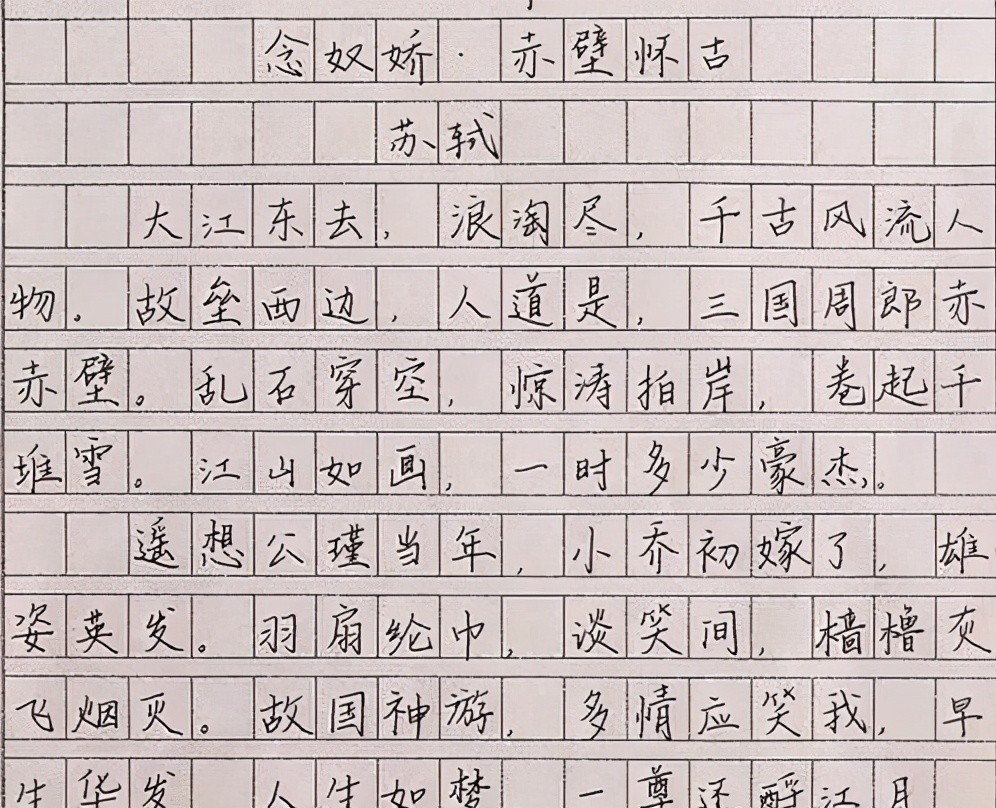 念奴娇·赤壁怀古
苏轼
大江东去，浪淘尽，千古风流人
物。故垒西边，人道是，三国周郎赤
赤壁。乱石穿空，惊涛拍岸，卷起千
堆雪。江山如画，一时多少豪杰。
遥想公瑾当年，小乔初嫁了，雄
姿英发。羽扇纶巾，谈笑间，樯橹灰
飞烟灭。故国神游，多情应笑我，早
生华发 人生如梦 一尊还酹江月